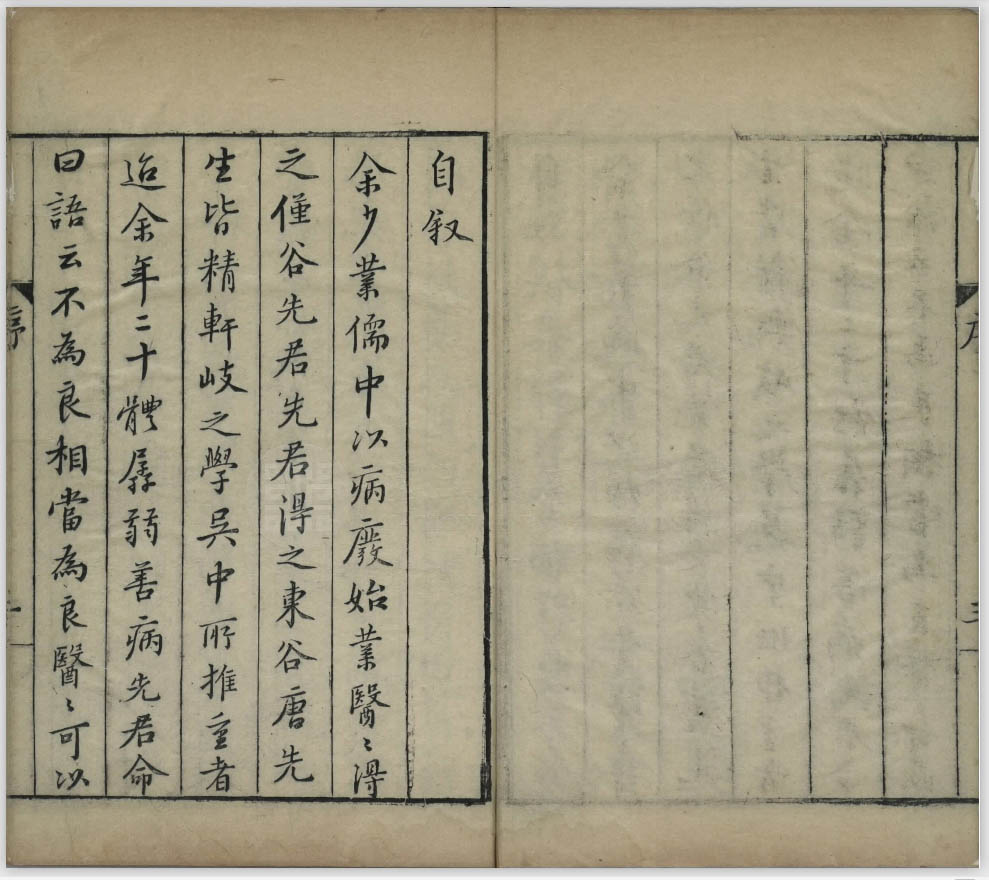 自叙
余少業儒中以病廢始業醫〻得
之僅谷先君先君得之東谷唐先
生皆精軒岐之學吳中所推重者
迨余年二十體孱弱善病先君命
曰語云不為良相當為良醫〻可以
序